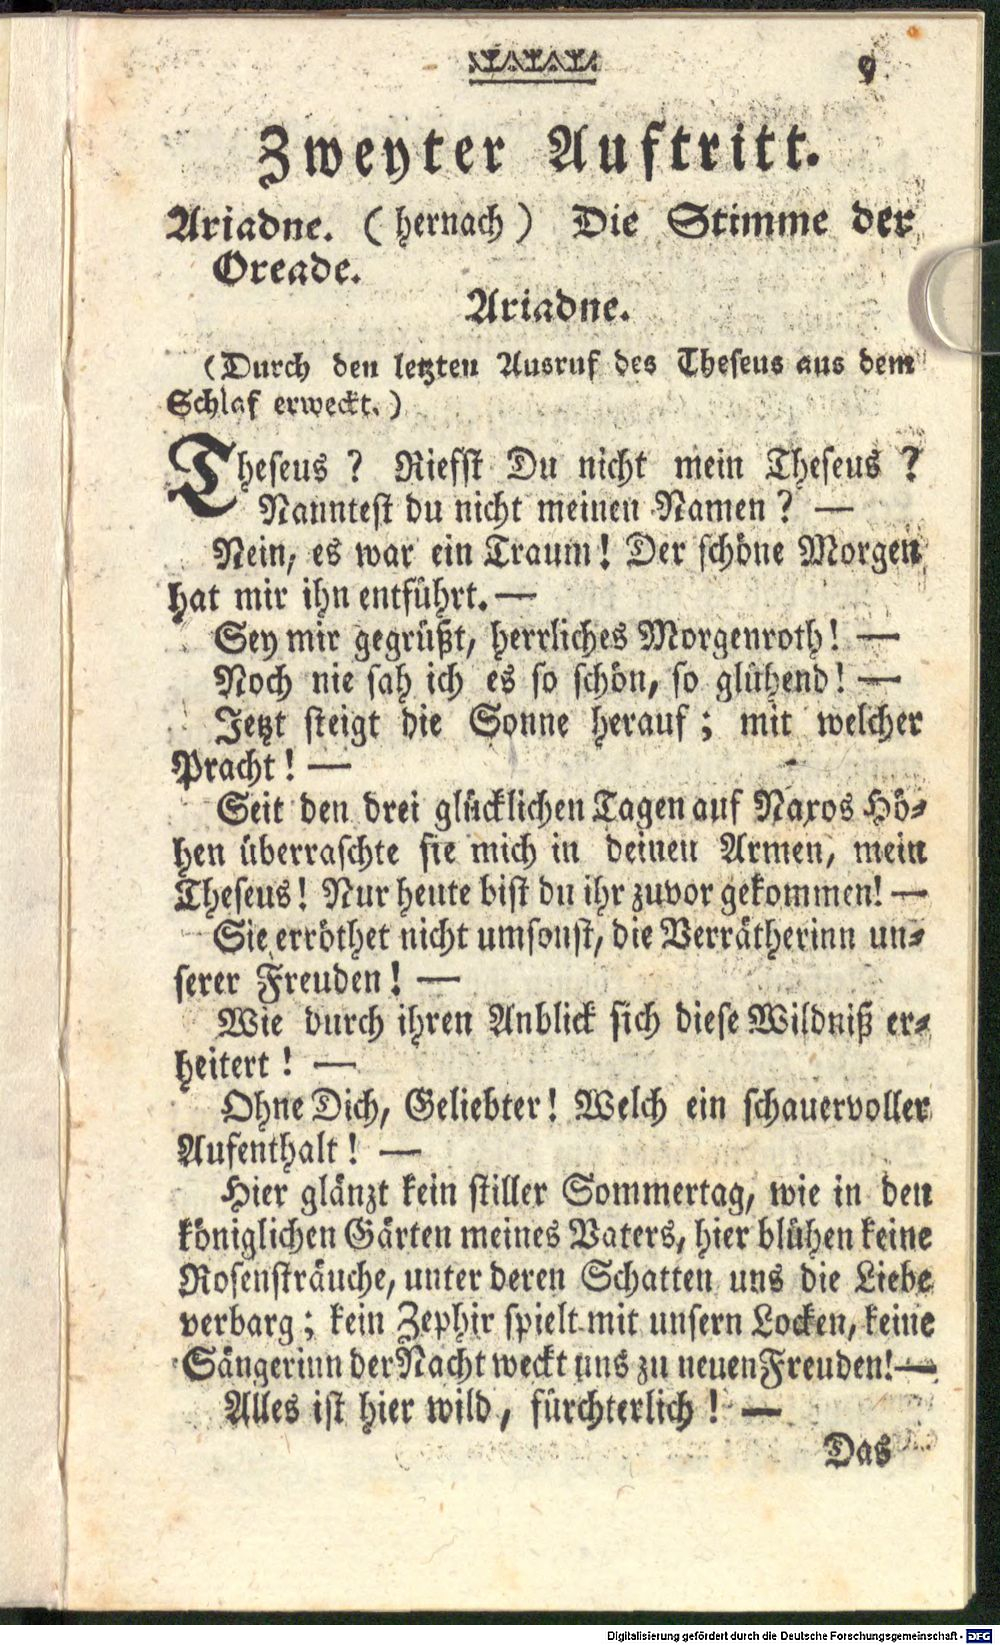 9
Zweyter Auftritt.
Ariadne. (hernach) Die Stimme der
Oreade.
Ariadne.
(Durch den letzten Ausruf des Theseus aus dem
Schlaf erweckt.)
Theseus? Riefst Du nicht mein Theseus?
Nanntest du nicht meinen Namen? —
Nein, es war ein Traum! Der schöne Morgen
hat mir ihn entführt. —
Sey mir gegrüßt, herrliches Morgenroth! —
Noch nie sah ich es so schön, so glühend! —
Jetzt steigt die Sonne herauf; mit welcher
Pracht! —
Seit den drei glücklichen Tagen auf Naxos Hö-
hen überraschte sie mich in deinen Armen, mein
Theseus! Nur heute bist du ihr zuvor gekommen! —
Sie erröthet nicht umsonst, die Verrätherinn un-
serer Freuden! —
Wie durch ihren Anblick sich diese Wildniß er-
heitert! —
Ohne Dich, Geliebter! Welch ein schauervoller
Aufenthalt! —
Hier glänzt kein stiller Sommertag, wie in den
königlichen Gärten meines Vaters, hier blühen keine
Rosensträuche, unter deren Schatten uns die Liebe
verbarg; kein Zephir spielt mit unsern Locken, keine
Sängerinn der Nacht weckt uns zu neuen Freuden! —
Alles ist hier wild, fürchterlich! —
Das
Digitalisierung gefördert durch die Deutsche Forschungsgemeinschaft - DFG